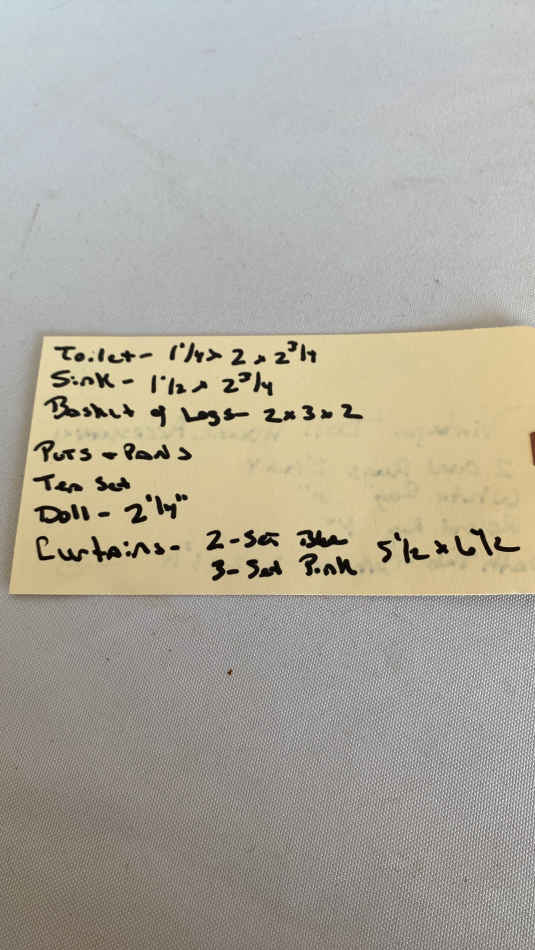 Toilet - 1 1/4 x 2 x 2 3/4
Sink - 1 1/2 x 2 3/4
Basket of Logs - 2 x 3 x 2
Pots + Pans
Tea Set
Doll - 2 1/4"
Curtains - 2 - Set Blue 5 1/2 x 6 1/2
3 - Set Pink